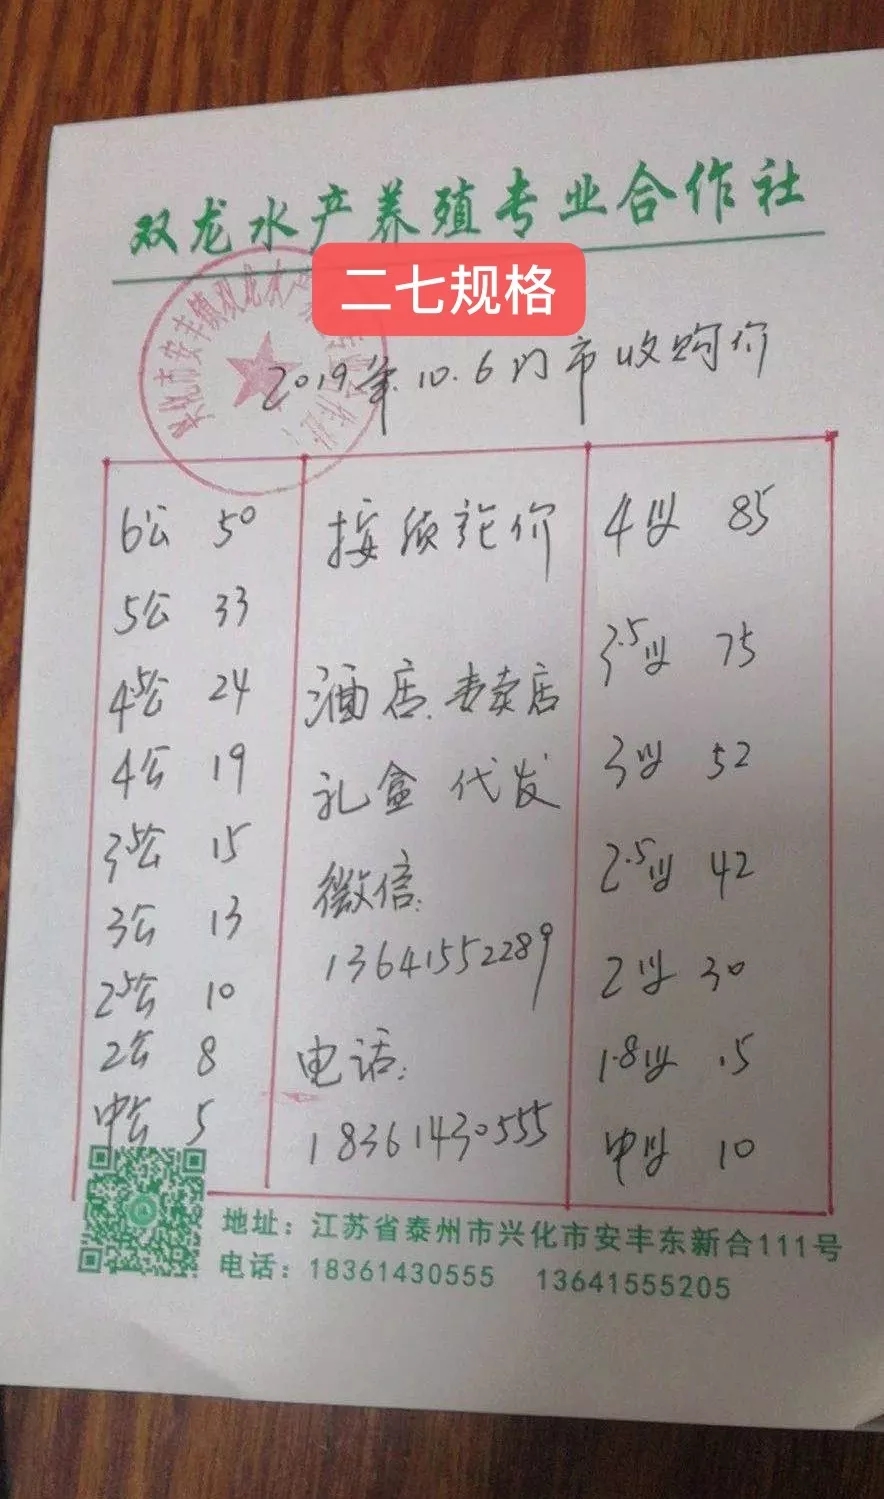 双龙水产养殖专业合作社
二七规格
2019年.10.6门市收购价
6公 50
5公 33
4.5公 24
4公 19
3.5公 15
3公 13
2.5公 10
2公 8
中公 5
按质论价
酒店、专卖店
礼盒 代发
微信:
13641552289
电话:
18361430555
4母 85
3.5母 75
3母 52
2.5母 42
2母 30
1.8母 15
中母 10
地址：江苏省泰州市兴化市安丰东新合111号
电话：18361430555 13641555205